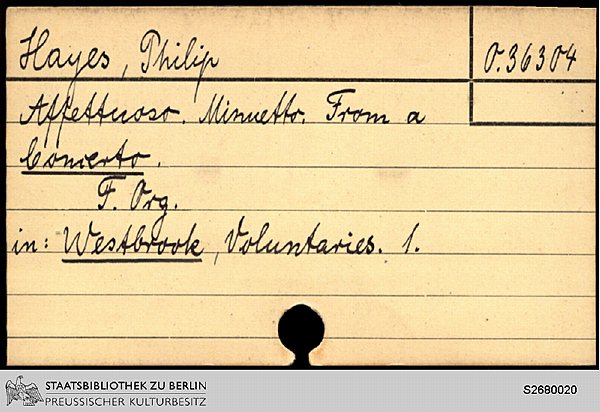 Hayes, Philip
O.36304
Affettuoso. Minuetto. From a
Concerto.
F. Org.
in: Westbrook, Voluntaries. 1.
STAATSBIBLIOTHEK ZU BERLIN
PREUSSISCHER KULTURBESITZ
S2680020